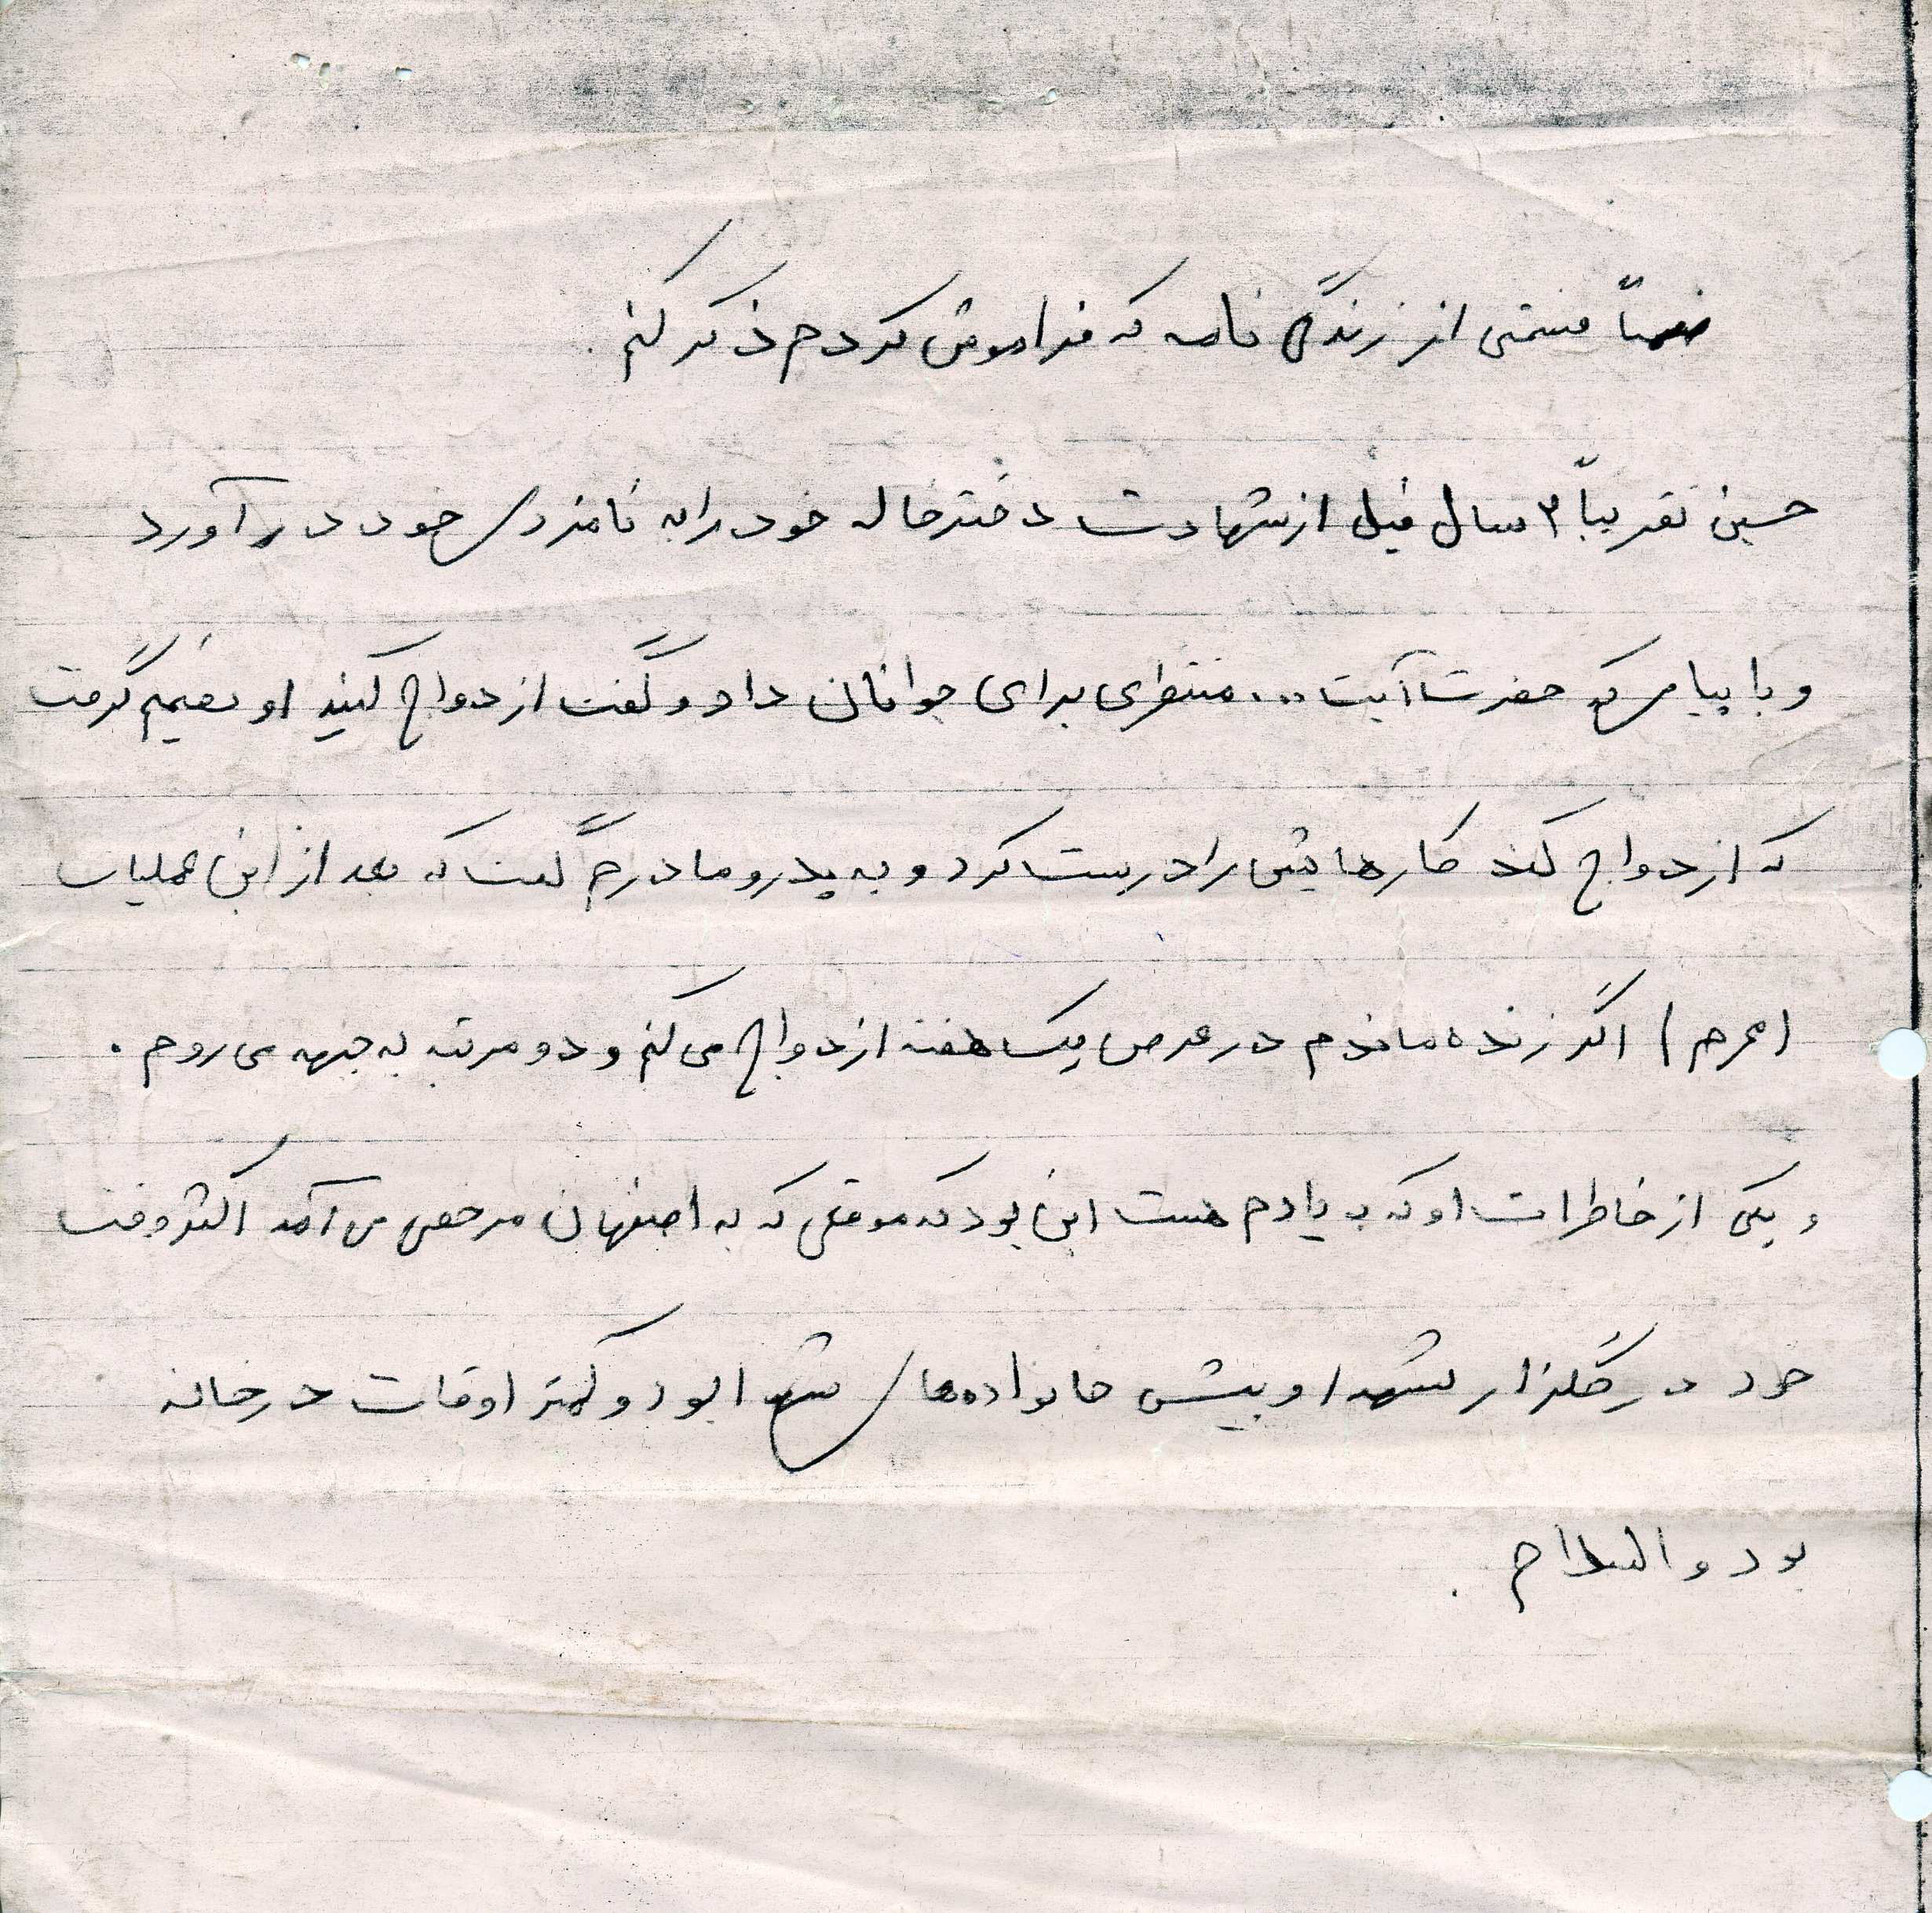 ضمناً قسمتی از زندگی نامه که فراموش کردم ذکر کنم .
حسین تقریباً ۳ سال قبل از شهادت دختر خاله خود را به نامزدی خود در آورد
و با پیامی که حضرت آیت ... منتظری برای جوانان داد و گفت ازدواج کنید او تصمیم گرفت
که ازدواج کند کارهایش را درست کرد و به پدر و مادرم گفت که بعد از این عملیات
(محرم) اگر زنده ماندم در عرض یک هفته ازدواج می کنم و دو مرتبه به جبهه می روم .
و یکی از خاطرات او که به یادم هست این بود که موقعی که به اصفهان مرخصی می آمد اکثر وقت
خود در گلزار شهدا و پیش خانواده های شهدا بود و کمتر اوقات در خانه
بود والسلام .